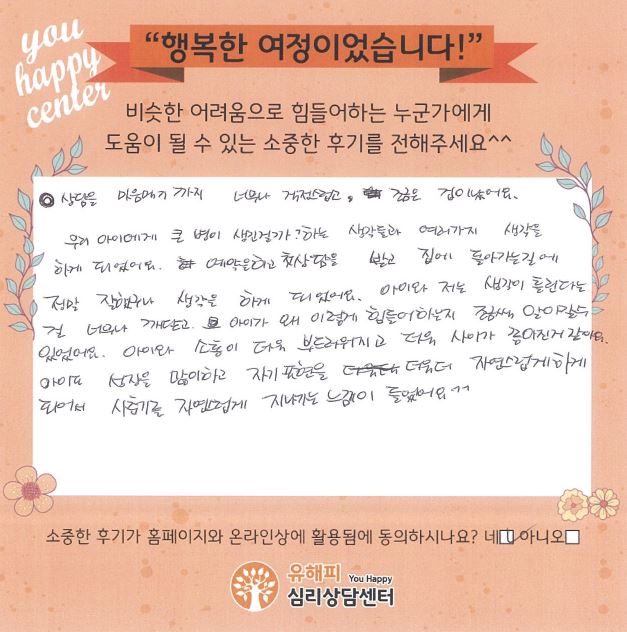 you
happy
center
“행복한 여정이었습니다!”
비슷한 어려움으로 힘들어하는 누군가에게
도움이 될 수 있는 소중한 후기를 전해주세요^^
상담을 마음먹기 까지 너무나 걱정스럽고, 조금은 겁이났어요.
우리 아이에게 큰 병이 생긴걸까? 하는 생각들과 여러가지 생각을
하게 되었어요. 예약을하고 첫상담을 받고 집에 돌아가는길에
정말 잘했구나 생각을 하게 되었어요. 아이와 저는 생각이 틀린다는
걸 너무나 깨닫고. 아이가 왜 이렇게 힘들어하는지 조금씩 알아갈수
있었어요. 아이와 소통이 더욱 부드러워지고 더욱 사이가 좋아진거 같아요.
아이도 성장을 많이하고 자기표현을 더욱더 자연스럽게 하게
되어서 사춘기를 자연스럽게 지나가는 느낌이 들었어요^^
소중한 후기가 홈페이지와 온라인상에 활용됨에 동의하시나요? 네 아니오
유해피 You Happy
심리상담센터